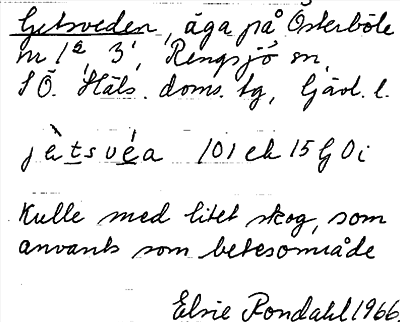 Getsveden, äga på Österböle
nr 1², 3¹, Rengsjö sn,
SÖ. Häls. doms. tg, Gävl. l.
jètsvéa 101 ek 15G 0i
Kulle med litet skog, som
använts som betesområde
Elsie Rondahl 1966.